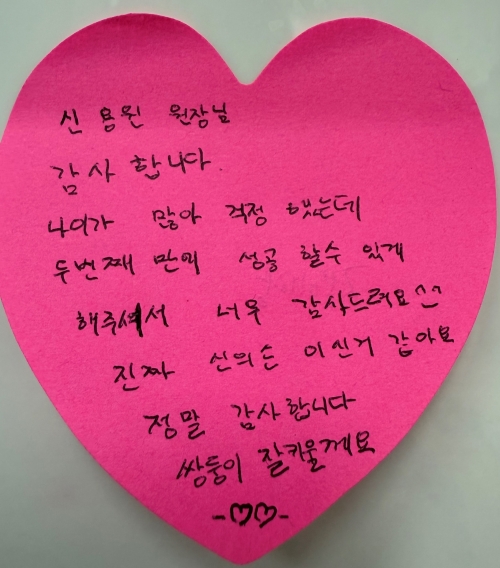 신용원 원장님
감사합니다.
나이가 많아 걱정 했는데
두번째 만에 성공 할수 있게
해주셔서 너무 감사드려요^^
진짜 신의손 이신거 같아요
정말 감사합니다
쌍둥이 잘키울께요
-♡♡-